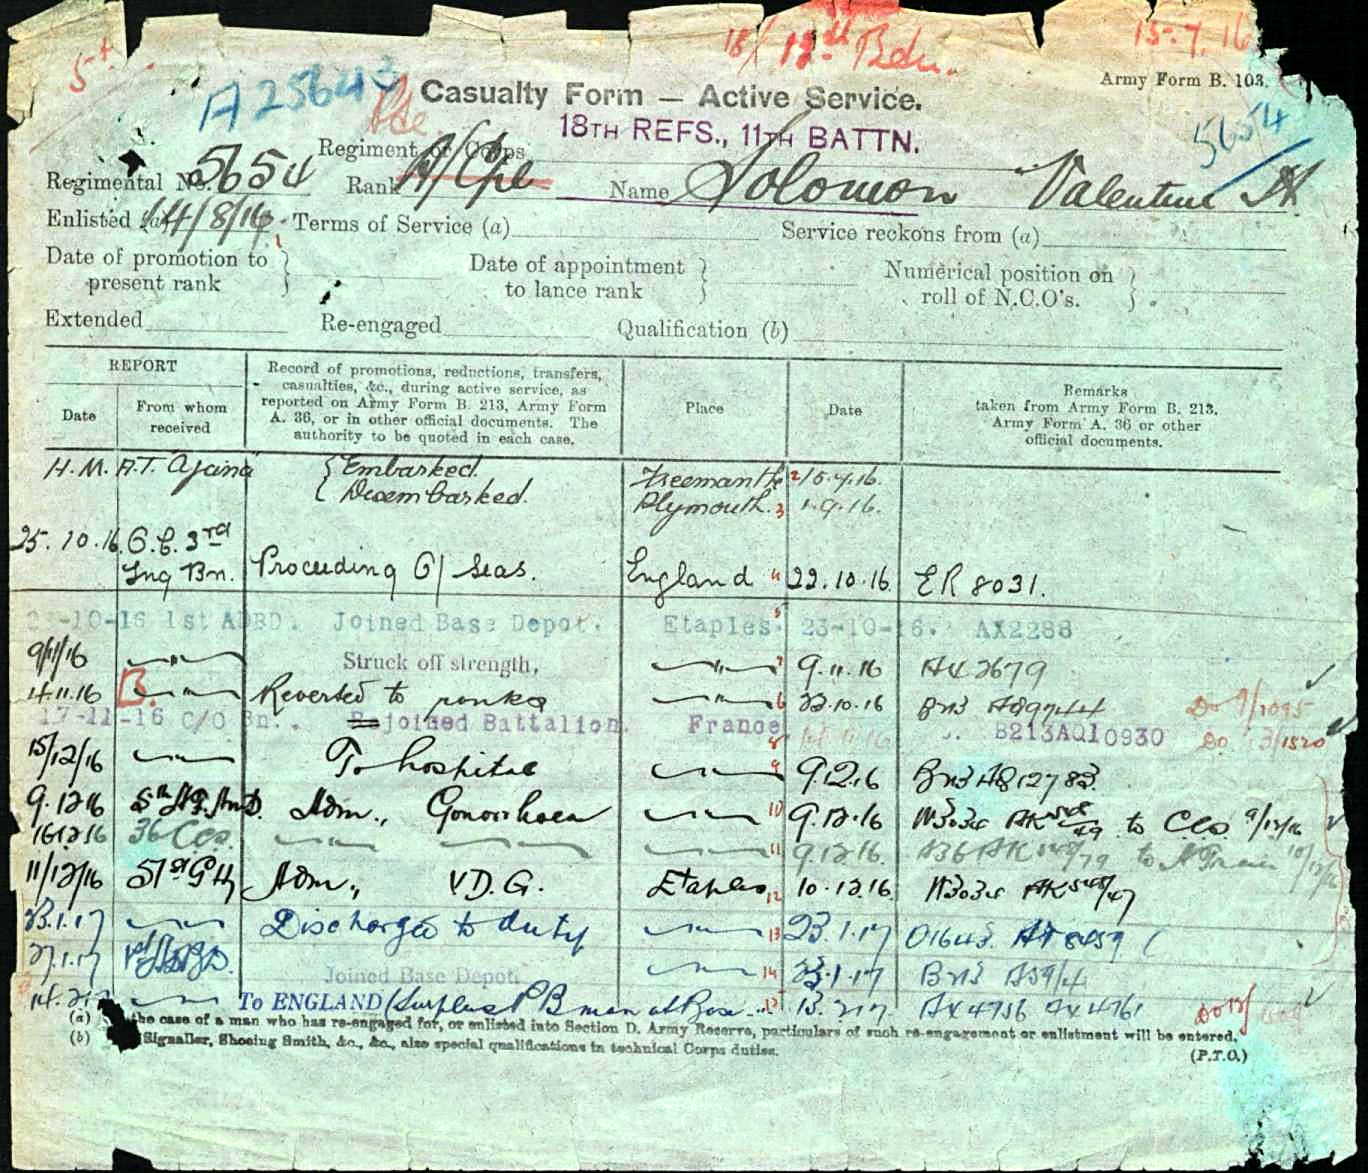 18/ 12th Bdn. 15.7.16
5t
A 25643
Army Form B. 103.
Pte
Casualty Form — Active Service.
5654
18TH REFS., 11TH BATTN.
Regiment or Corps
Regimental No. 5654 Rank A/Cpl Name Solomon Valentine
Enlisted (a) 14/8/16 Terms of Service (a) Service reckons from (a)
Date of promotion to present rank Date of appointment to lance rank Numerical position on roll of N.C.O's.
Extended Re-engaged Qualification (b)
REPORT
Date From whom received
Record of promotions, reductions, transfers, casualties, &c., during active service, as reported on Army Form B. 213, Army Form A. 36, or in other official documents. The authority to be quoted in each case.
Place Date
Remarks taken from Army Form B. 213, Army Form A. 36 or other official documents.
H.M.A.T. Ajana Embarked. Freemantle 2 15.7.16.
Disembarked. Plymouth. 3 1.9.16.
25.10.16 O.C. 3rd
Trng Bn. Proceeding O/Seas. England 4 22.10.16 ER 8031.
23-10-16 1st ADBD. Joined Base Depot. Etaples. 5 23-10-16. AX2288
9/11/16 —"— Struck off strength, —"— 7 9.11.16 AX 2679
14.11.16 B. —"— Reverted to ranks —"— 6 23.10.16
17-11-16 C/O Bn.. Rejoined Battalion. France 8 B213AQ10930 Do 13/1520
15/12/16 —"— To hospital —"— 9 9.12.16 B213 AQ 12783
9.12.16 Adm., Gonorrhoea —"— 10 9.12.16 W3034 to CCS 9/12/16
16.12.16 36 CCS. —"— —"— —"— 11 9.12.16. A36
11/12/16 51st G H Adm., V.D.G. Etaples 12 10.12.16 W3034
23.1.17 —"— Discharged to duty —"— 13 23.1.17 O1643
27.1.17 Joined Base Depot. —"— 14 23.1.17 B213
14.2.17 —"— To ENGLAND (Surplus P B man at Base 15 13.2.17 AX 4756 AX 4761
(a) the case of a man who has re-engaged for, or enlisted into Section D. Army Reserve, particulars of such re-engagement or enlistment will be entered.
(b) Signaller, Shoeing Smith, &c., &c., also special qualifications in technical Corps duties.
(P.T.O.)